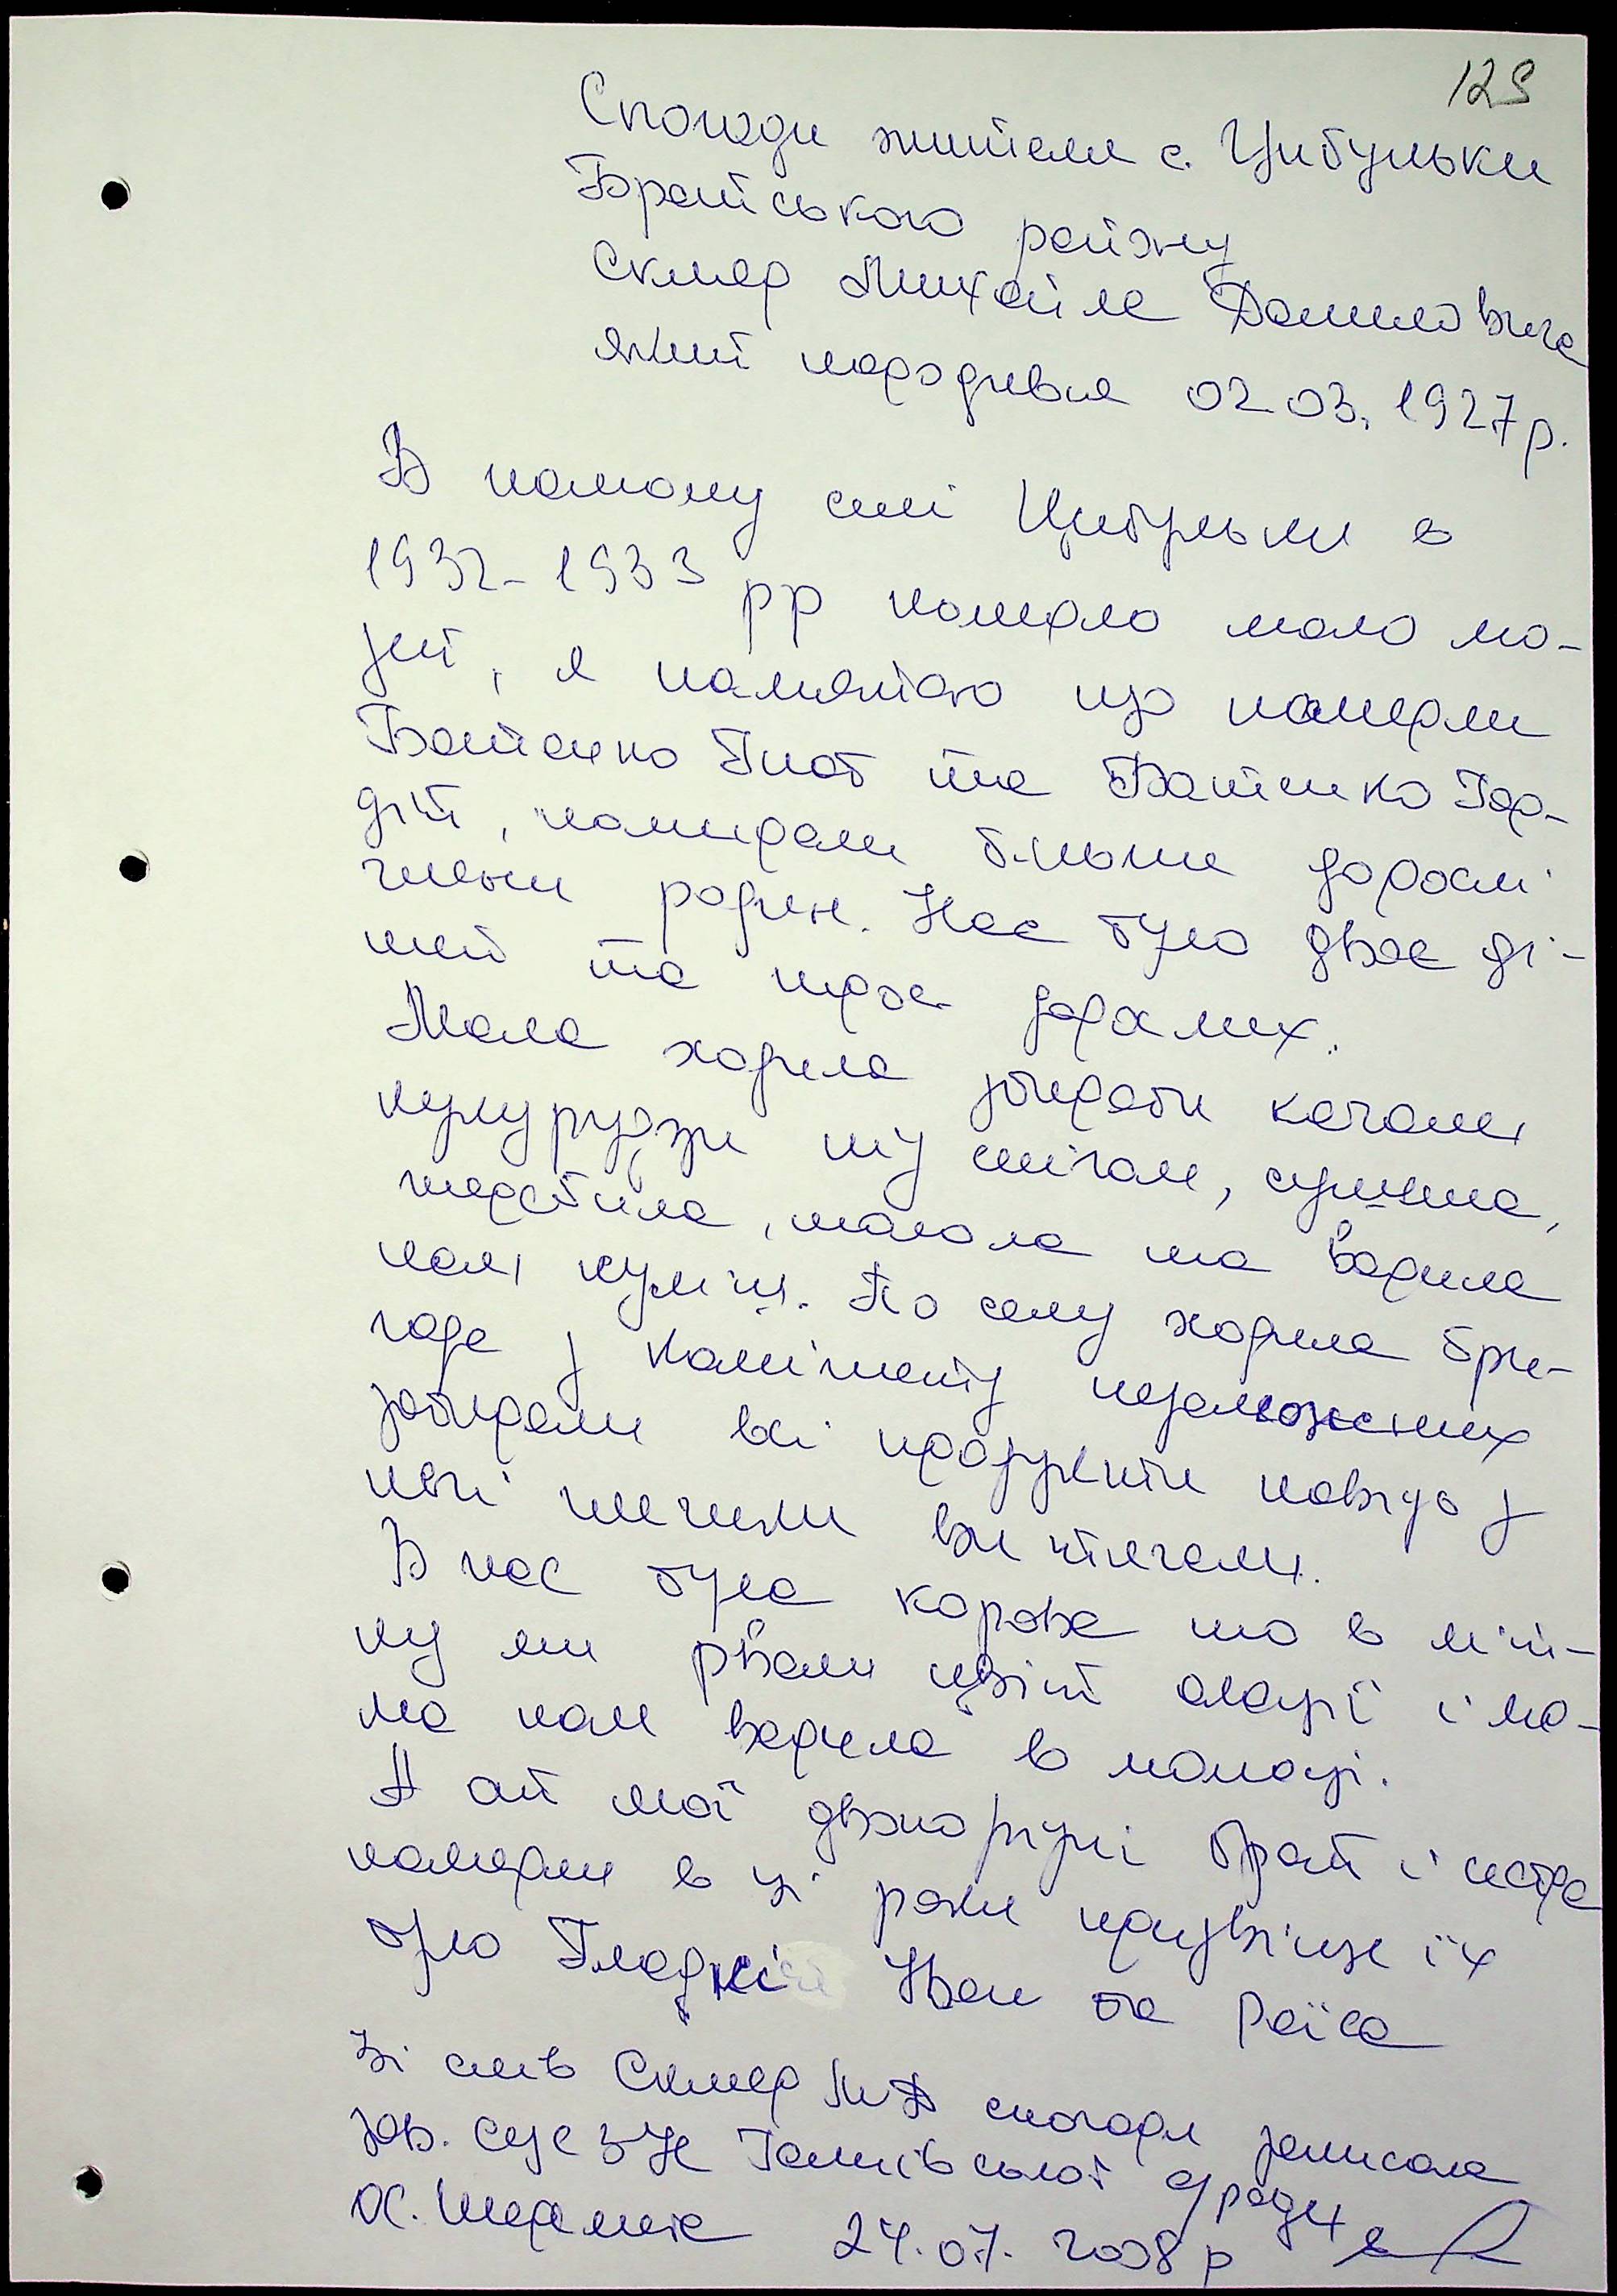 129
Спогади жителя с. Цибульки
Братського району
Скляр Михайла Даниловича
який народився 02.03.1927р.
В нашому селі Цибульки в
1932-1933 рр померло мало лю-
дей, я памятаю що померли
Батенко Гнат та Батенко Гор-
дій, помирали більше дорослі
члени родин. Нас було двоє ді-
тей та троє дорослих.
Мама ходила збирати качани
кукурудзи під снігом, сушила,
шеретила, молола та варила
нам куліш. По селу ходила бри-
гада з комітету незаможних
забирали всі продукти навіть з
печі чигуни витягали.
В нас була корова то в літ-
ку ми рвали цвіт акації і ма-
ма нам варила в молоці.
А от мої двоюрідні брат і сестра
померли в ці роки прізвище їх
було Гладкі Іван та Раїса
Зі слів Скляр МД спогади записала
зав. СБК Ганнівської с/ради
24.07.2008 р